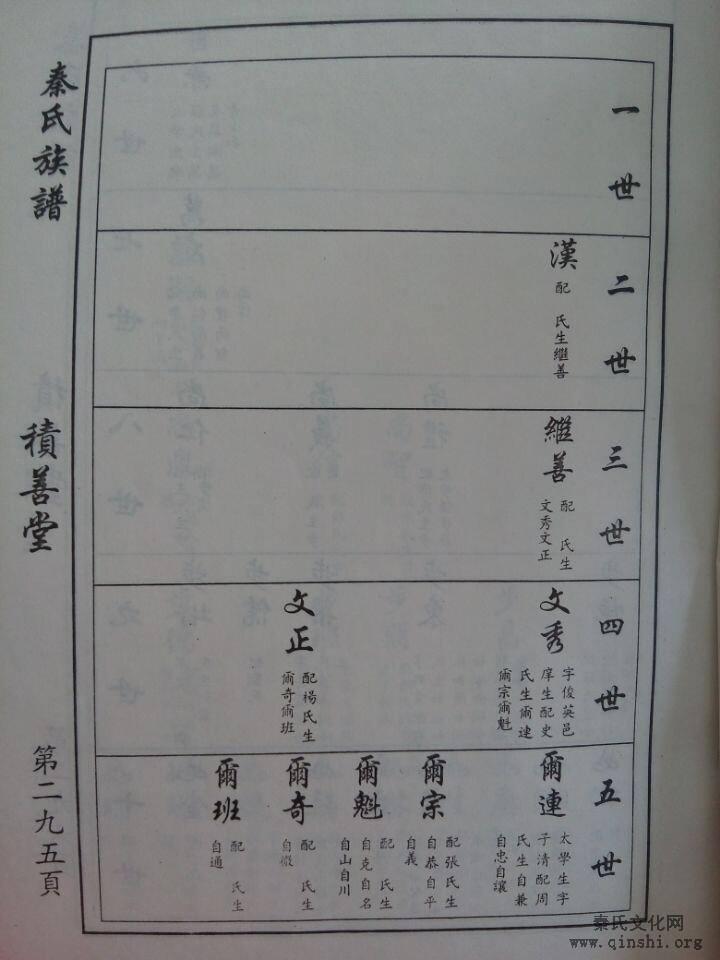 秦氏族譜
積善堂
第二九五頁
一世
二世
漢
配　氏生繼善
三世
繼善
配　氏生
文秀文正
四世
文秀
字俊英邑
庠生配史
氏生爾連
爾宗爾魁
文正
配楊氏生
爾奇爾班
五世
爾連
太學生字
子清配周
氏生自兼
自忠自讓
爾宗
配張氏生
自恭自平
自義
爾魁
配　氏生
自克自名
自山自川
爾奇
配　氏生
爾班
配　氏生
自通
秦氏文化网
www.qinshi.org